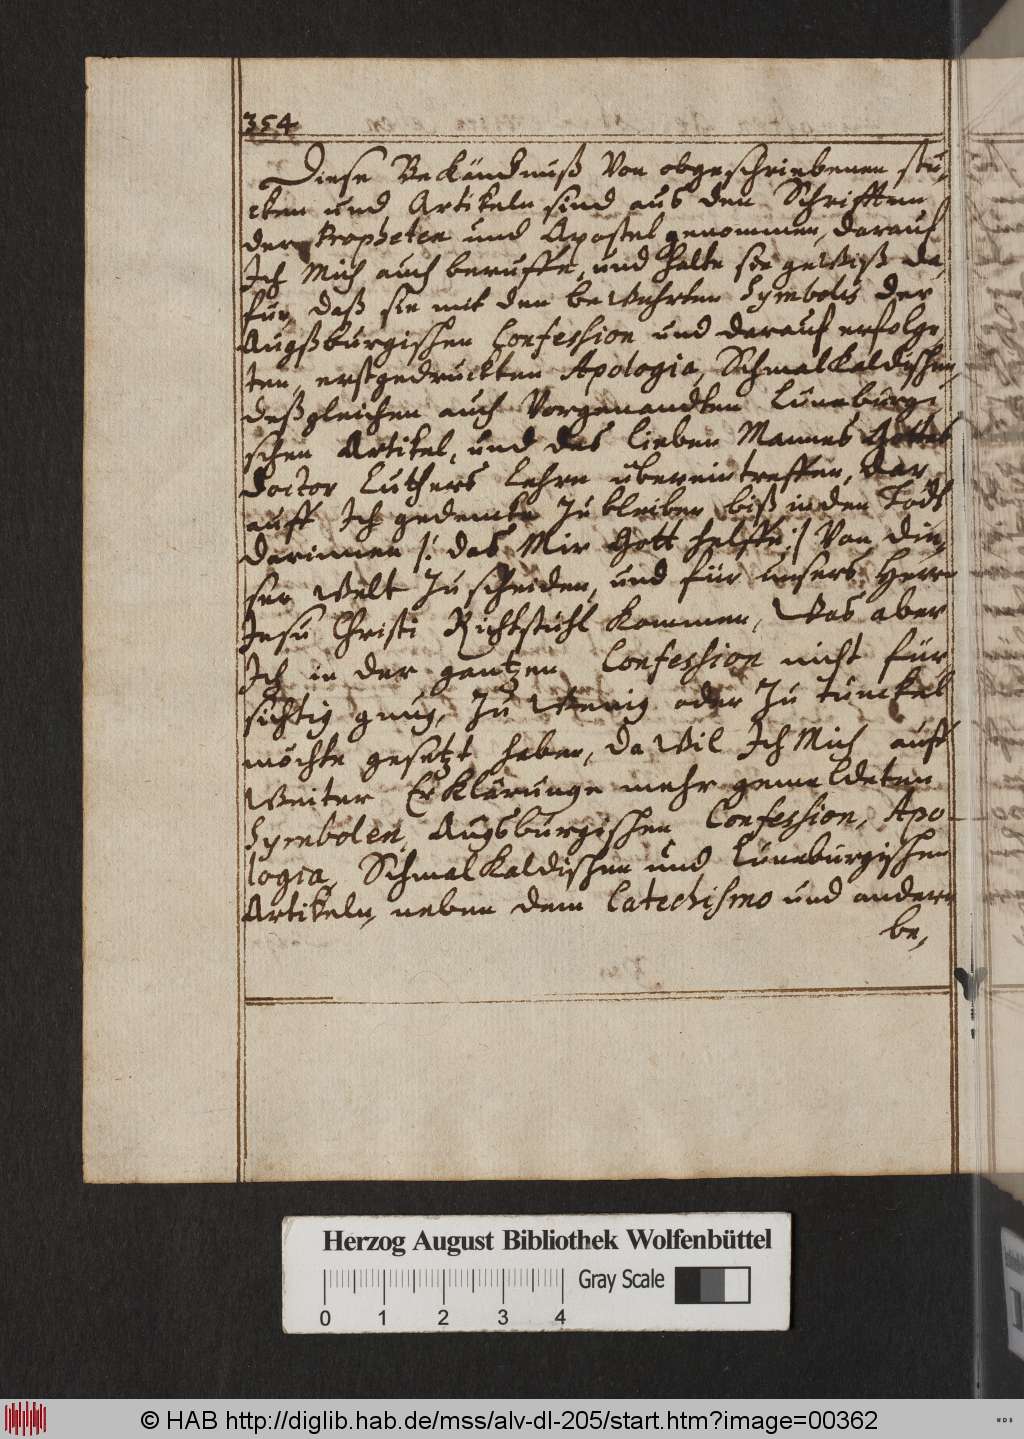 354
Diese Bekändnuß Von obgeschriebenen stü,
cken und Artikeln sind aus den Schrifften
der Propheten und Apostel genommen, darauf
Ich Mich auch beruffe, und halte sie gewiß da,
für, daß sie mit den bewährten Symbolis der
Augßburgischen Confession und darauf erfolge
ten, erstgedruckten Apologia, Schmalkaldischen,
deßgleichen auch Vorgenandten Lüneburgi
schen Artikel, und des lieben Mannes Gottes
Doctor Luthers Lehre übereintreffen, dar,
auff Ich gedencke Zu bleiben biß in den Todt
darinnen /: das Mir Gott helffe :/ Von die,
ser Welt Zu scheiden, und für unsers Herrn
Jesu Christi Richtstuhl kommen, Was aber
Ich in der gantzen Confession nicht für
sichtig gnug, Zu Wenig oder Zu tunckel
möchte gesetzt haben, da Wil Ich Mich auff
Weiter Erklärunge mehr gemeldeten
Symbolen, Augsburgischen Confession, Apo
logia, Schmalkaldischen und Lüneburgischen
Artikeln, neben dem Catechismo und andern
be,
Herzog August Bibliothek Wolfenbüttel
Gray Scale
0 1 2 3 4
© HAB http://diglib.hab.de/mss/alv-dl-205/start.htm?image=00362